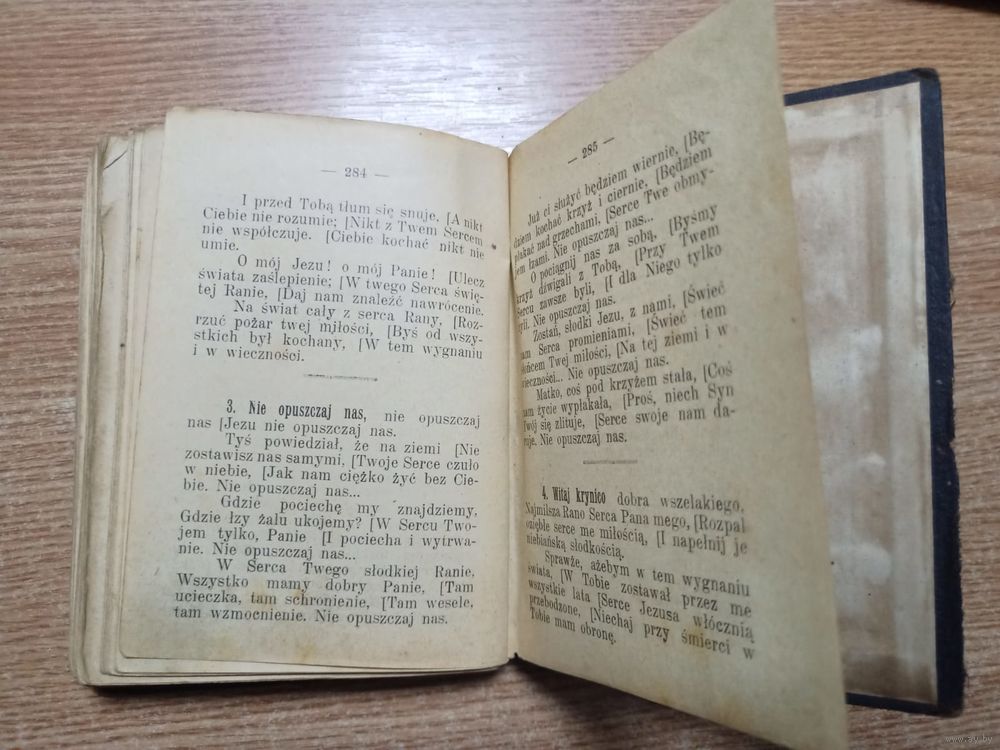 — 284 —
I przed Tobą tłum się snuje, [A nikt
Ciebie nie rozumie; [Nikt z Twem Sercem
nie współczuje. [Ciebie kochać nikt nie
umie.
O mój Jezu! o mój Panie! [Ulecz
świata zaślepienie; [W twego Serca świę-
tej Ranie, [Daj nam znaleźć nawrócenie.
Na świat cały z serca Rany, [Roz-
rzuć pożar twej miłości, [Byś od wszy-
stkich był kochany, [W tem wygnaniu
i w wieczności.
3. Nie opuszczaj nas, nie opuszczaj
nas [Jezu nie opuszczaj nas.
Tyś powiedział, że na ziemi [Nie
zostawisz nas samymi, [Twoje Serce czuło
w niebie, [Jak nam ciężko żyć bez Cie-
bie. Nie opuszczaj nas...
Gdzie pociechę my znajdziemy,
Gdzie łzy żalu ukojemy? [W Sercu Two-
jem tylko, Panie [I pociecha i wytrwa-
nie. Nie opuszczaj nas...
W Serca Twego słodkiej Ranie,
Wszystko mamy dobry Panie, [Tam
ucieczka, tam schronienie, [Tam wesele,
tam wzmocnienie. Nie opuszczaj nas.
— 285 —
Już ci służyć będziem wiernie, [Bę-
dziem kochać krzyż i ciernie, [Będziem
płakać nad grzechami, [Serce Twe obmy-
jem łzami. Nie opuszczaj nas...
O pociągnij nas za sobą, [Byśmy
krzyż dźwigali z Tobą, [Przy Twem
Sercu zawsze byli, [I dla Niego tylko
żyli. Nie opuszczaj nas.
Zostań, słodki Jezu, z nami, [Świeć
nam Serca promieniami, [Świeć tem
słońcem Twej miłości, [Na tej ziemi i w
wieczności... Nie opuszczaj nas.
Matko, coś pod krzyżem stała, [Coś
nam życie wypłakała, [Proś, niech Syn
Twój się zlituje, [Serce swoje nam da-
ruje. Nie opuszczaj nas.
4. Witaj krynico dobra wszelakiego,
Najmilsza Rano Serca Pana mego, [Rozpal
oziębłe serce me miłością, [I napełnij je
niebiańską słodkością.
Sprawże, ażebym w tem wygnaniu
świata, [W Tobie zostawał przez me
wszystkie lata [Serce Jezusa włócznią
przebodzone, [Niechaj przy śmierci w
Tobie mam obronę.
www.ay.by